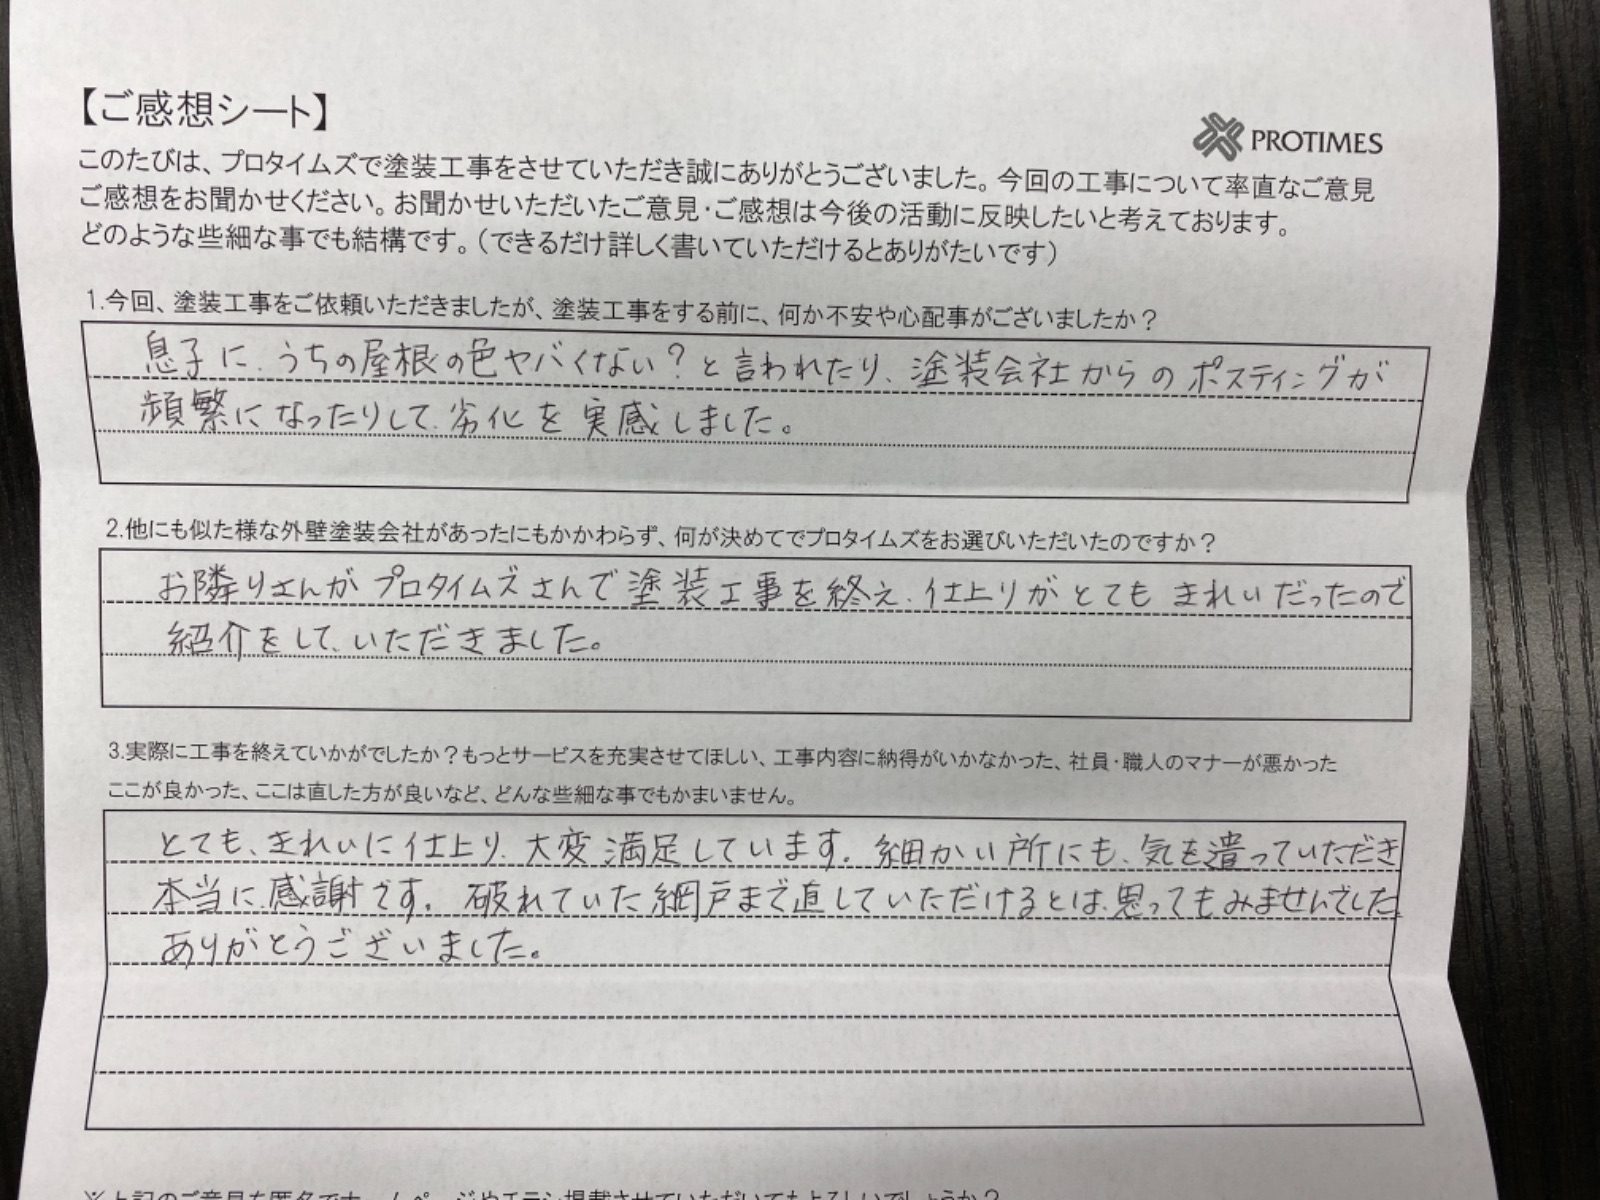 【ご感想シート】
PROTIMES
このたびは、プロタイムズで塗装工事をさせていただき誠にありがとうございました。今回の工事について率直なご意見
ご感想をお聞かせください。お聞かせいただいたご意見・ご感想は今後の活動に反映したいと考えております。
どのような些細な事でも結構です。（できるだけ詳しく書いていただけるとありがたいです）
1.今回、塗装工事をご依頼いただきましたが、塗装工事をする前に、何か不安や心配事がございましたか？
息子に、うちの屋根の色ヤバくない？と言われたり、塗装会社からのポスティングが
頻繁になったりして、劣化を実感しました。
2.他にも似た様な外壁塗装会社があったにもかかわらず、何が決めてでプロタイムズをお選びいただいたのですか？
お隣りさんがプロタイムズさんで塗装工事を終え、仕上りがとてもきれいだったので
紹介をして、いただきました。
3.実際に工事を終えていかがでしたか？もっとサービスを充実させてほしい、工事内容に納得がいかなかった、社員・職人のマナーが悪かった
ここが良かった、ここは直した方が良いなど、どんな些細な事でもかまいません。
とても、きれいに仕上り、大変満足しています。細かい所にも、気を遣っていただき
本当に、感謝です。破れていた網戸まで直していただけるとは、思ってもみませんでした。
ありがとうございました。
※上記のご意見を匿名でホームページやチラシ掲載させていただいてもよろしいでしょうか？